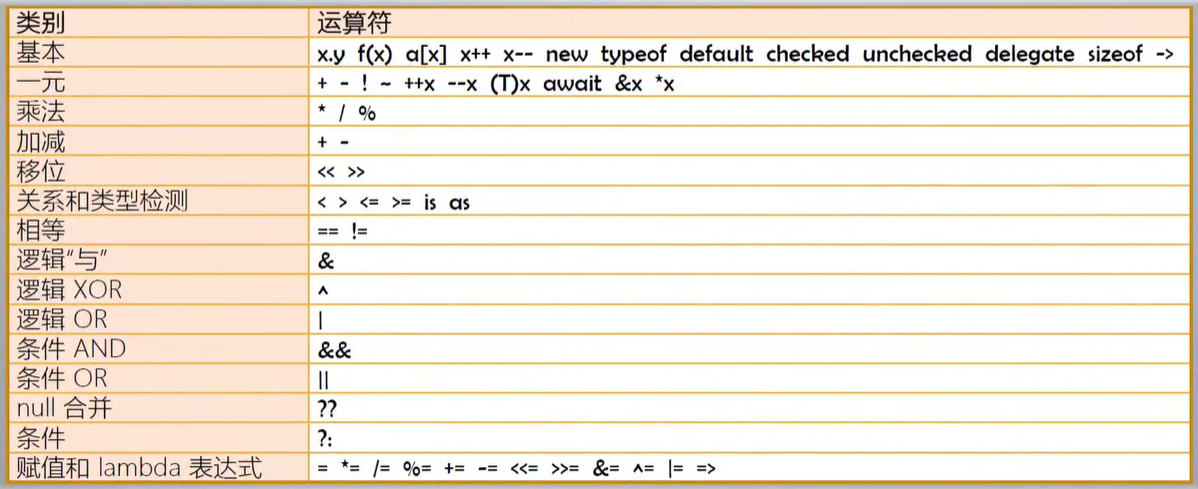 类别 运算符
基本 x.y f(x) a[x] x++ x-- new typeof default checked unchecked delegate sizeof ->
一元 + - ! ~ ++x --x (T)x await &x *x
乘法 * / %
加减 + -
移位 << >>
关系和类型检测 < > <= >= is as
相等 == !=
逻辑“与” &
逻辑 XOR ^
逻辑 OR |
条件 AND &&
条件 OR ||
null 合并 ??
条件 ?:
赋值和 lambda 表达式 = *= /= %= += -= <<= >>= &= ^= |= =>